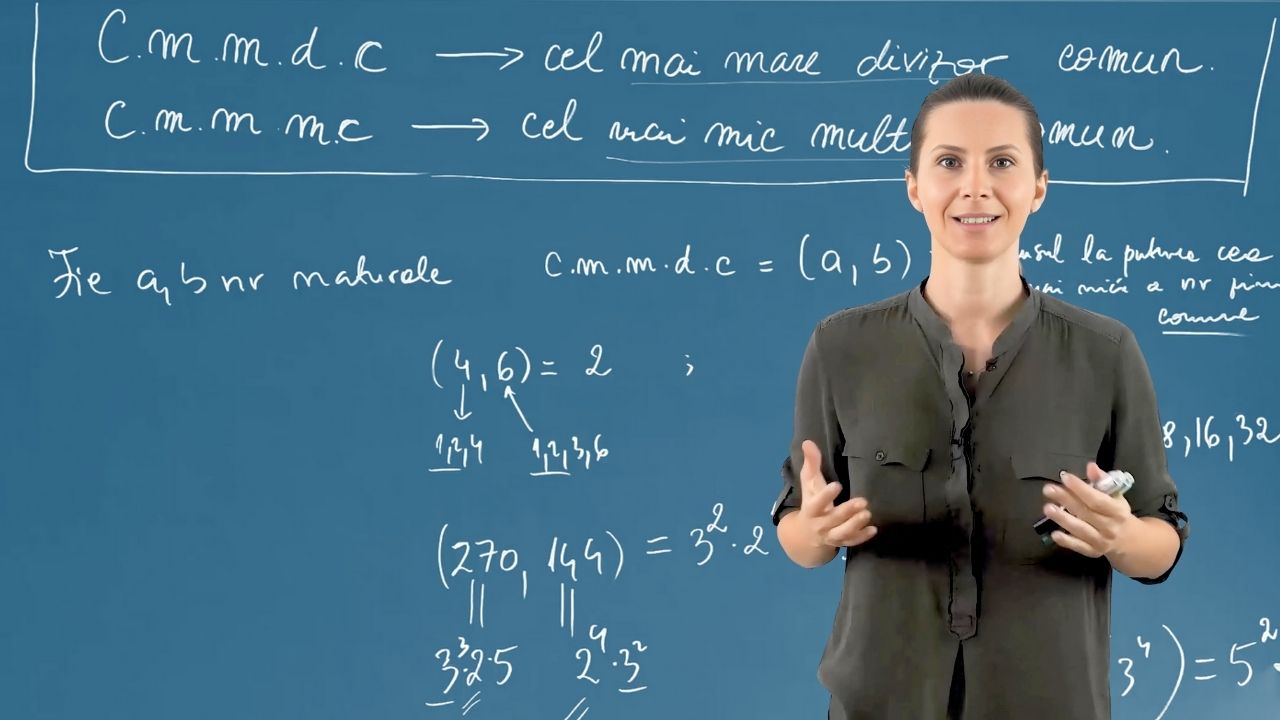 C.m.m.d.c → cel mai mare divizor comun.
C.m.m.m.c → cel mai mic
Fie a, b nr naturale
c.m.m.d.c = (a, b)
la puterea cea
mai mică a nr
comune
(4, 6) = 2 ;
1,2,4
1,2,3,6
8,16,32
(270, 144) = 3².2
3³.2.5
2⁴.3²
3⁴) = 5²